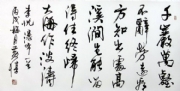 千巖萬壑
不辭勞遠看
方知出處高
溪澗豈能留
得住終歸
大海作波濤
李忱瀑布
丙戌